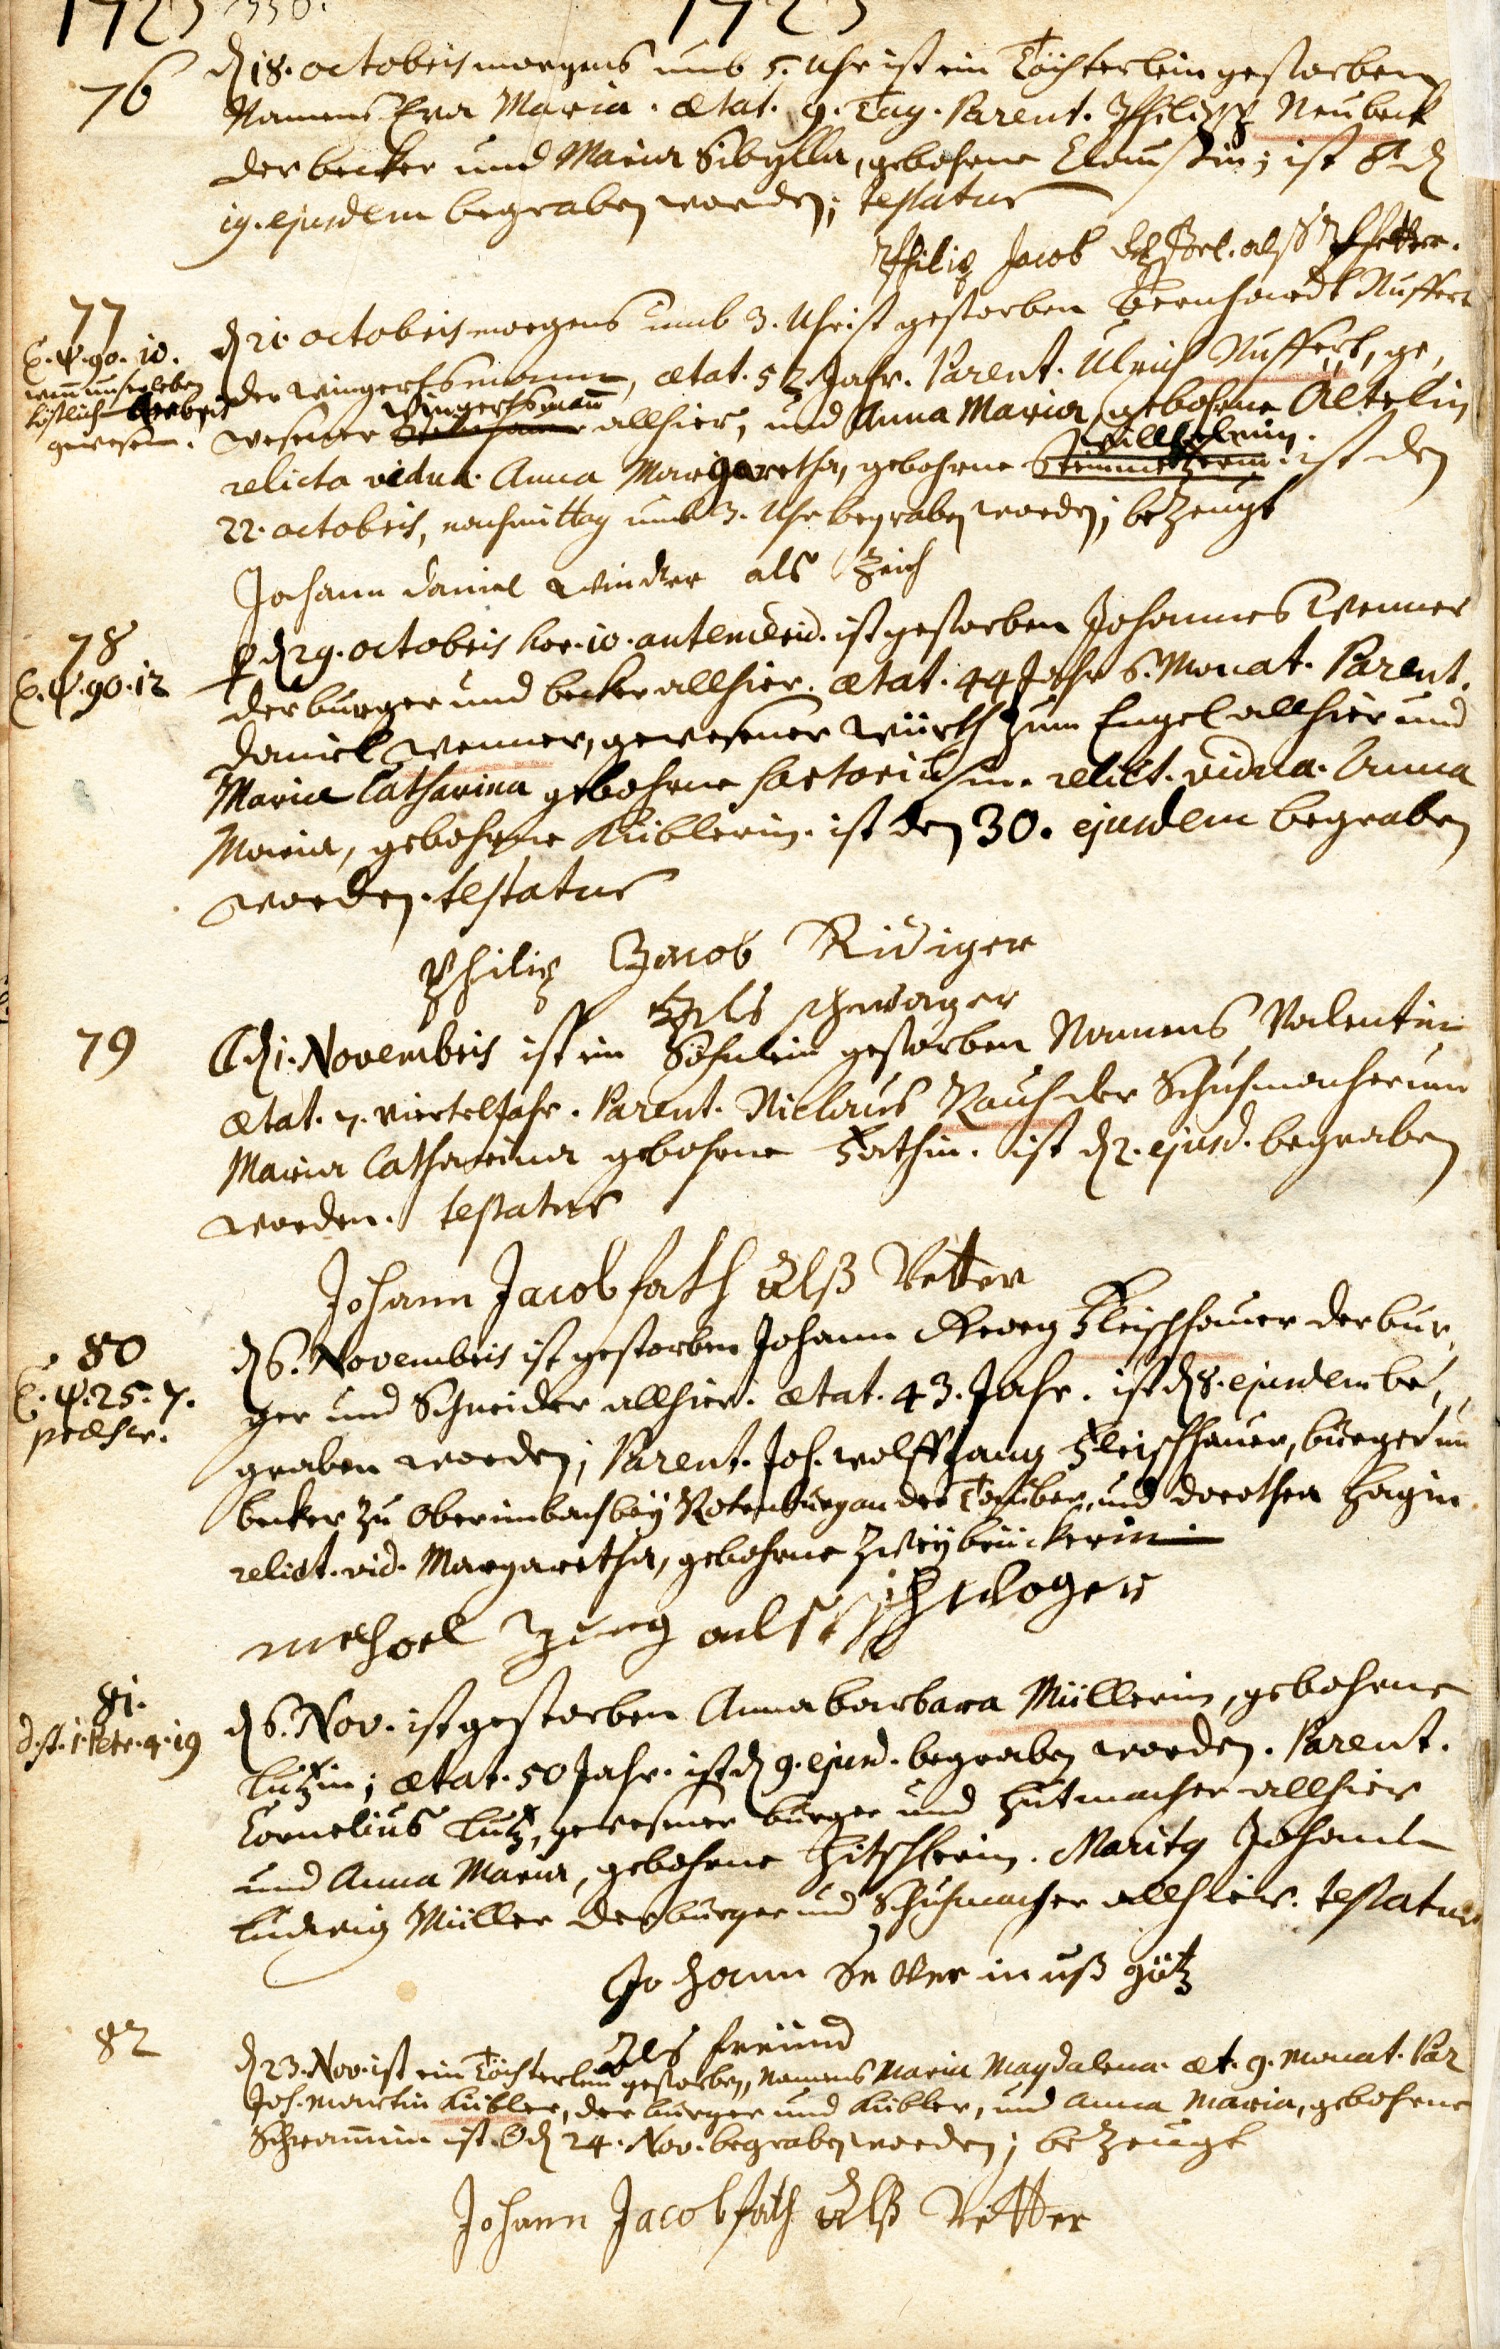 1725 1725
76
d. 18. octobris morgens umb 5. Uhr ist ein Töchterlein gestorben
Namens Eva Maria. ætat. 9. Tag. Parent. Philipp Neubeck
der becker und Maria Sibylla, gebohrne; ist d.
19. ejusdem begraben worden; testatur
Philip Jacob als Pfetter.
77
d. 21. octobris morgens umb 3. Uhr ist gestorben Bernhardt Nuffert
E. ψ. 90. 10.
wann unser leben
köstlich arbeit
gewesen.
der wingertsmann, ætat. 52 Jahr. Parent. Ulrich Nuffert, ge,
wingertsmann
wesener allhier, und Anna Maria, gebohrne Altelin,
relicta vidua. Anna Margaretha, gebohrne ist den
22. octobris, nachmittag umb 3. Uhr begraben worden; bezeugt
Johann Daniel als
78
E. ψ. 90. 12
d. 29. octobris hor. 10. antemerid. ist gestorben Johannes Wenner
der burger und becker allhier. ætat. 44 Jahr 6. Monat. Parent.
Daniel Wenner, gewesener würth zum Engel allhier und
Maria Catharina gebohrne Sartoriusin. relict. vidua. Anna
Maria, gebohrne Küblerin. ist den 30. ejusdem begraben
worden. testatur
Philip Jacob Ridiger
Als schwager
79
d. 1. Novembris ist ein Söhnlein gestorben Namens Valentin
ætat. 7. vierteljahr. Parent. Niclaus Rauch der Schuhmacher und
Maria Catharina gebohrne Fathin. ist d. 2. ejusd. begraben
worden. testatur
Johann Jacob fath Alß Vetter
80
E. ψ. 25. 7.
d. 6. Novembris ist gestorben Johann Georg Fleischhauer der bur,
ger und Schneider allhier. ætat. 43. Jahr. ist d. 8. ejusdem be,
graben worden; Parent. Joh. Wolffgang Fleischhauer, burger un
becker zu Oberimbach bey Rotenburg an der Tauber, und Dorothea Hagin
relict. vid. Margaretha, gebohrne Zweybrückerin.
mechael als schwoger
81.
D. st. 1. Petr. 4. 19
d. 6. Nov. ist gestorben Anna Barbara Müllerin, gebohrne
Lutzin; ætat. 50 Jahr. ist d. 9. ejusd. begraben worden. Parent.
Cornelius Lutz, gewesener burger und Hutmacher allhier
und Anna Maria, gebohrne Hitschlerin. Marito Johann
Ludwig Müller der burger und Schuhmacher allhier. testatur
Johann götz
Als freünd
82
d. 23. Nov. ist ein Töchterlein gestorben, Namens Maria Magdalena. æt. 9. Monat. Par
Joh. Martin Kübler, der burger und Kübler, und Anna Maria, gebohrne
Schrammin ist d. 24. Nov. begraben worden; bezeugt
Johann Jacob fath Alß Vetter